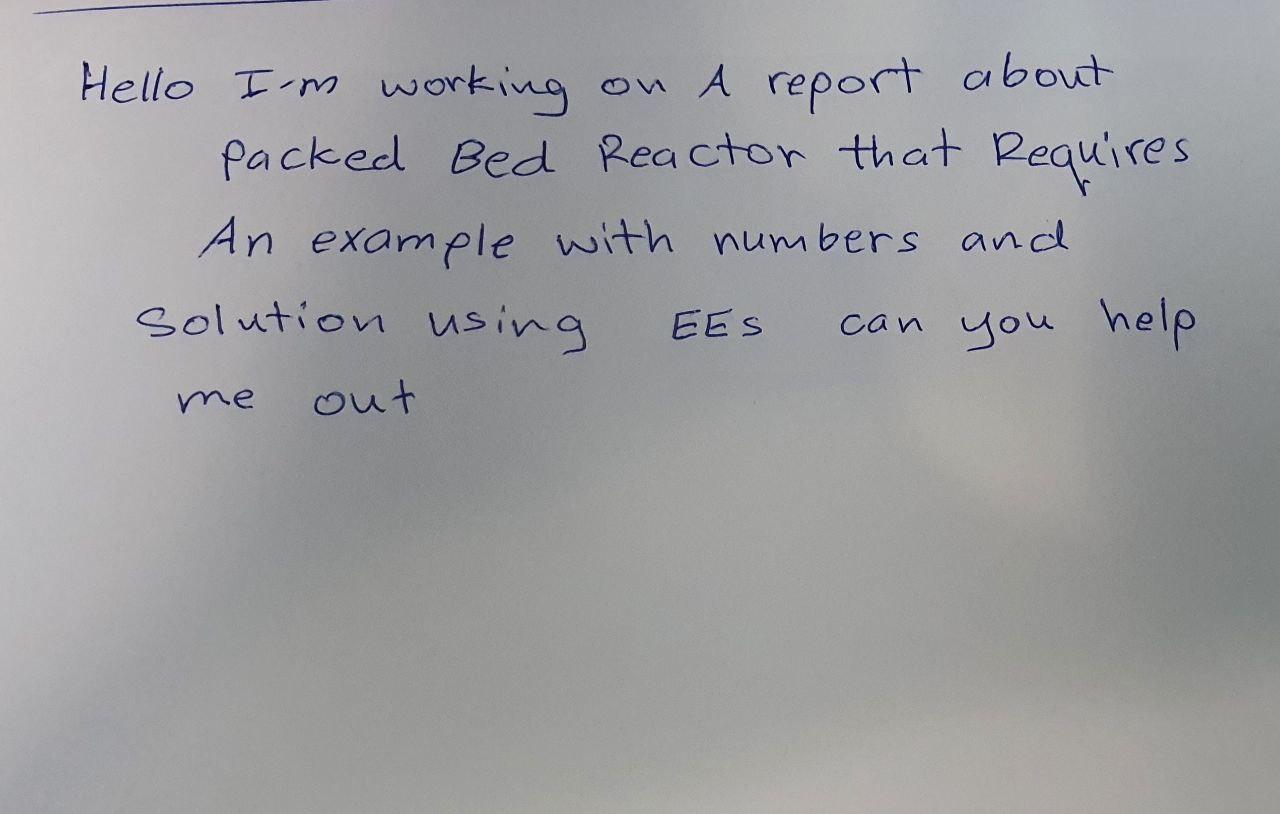 Hello I-m working on A report about
packed Bed Reactor that Requires
An example with numbers and
Solution using EES can you help
me out